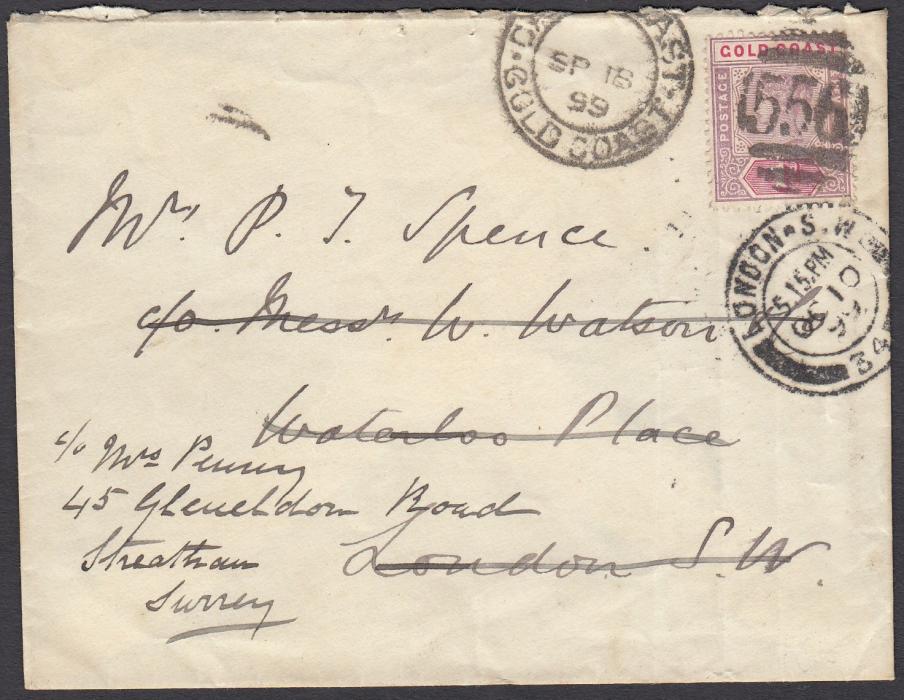 GOLD COAST
SP 16
99
GOLD COAST
POSTAGE
556
LONDON · S.W
5.15.PM
OC 10
99
34
Mrs. P. J. Spence
c/o. Messrs W. Watson
Waterloo Place
London S.W.
c/o Mrs Penny
45 Gleneldon Road
Streatham
Surrey